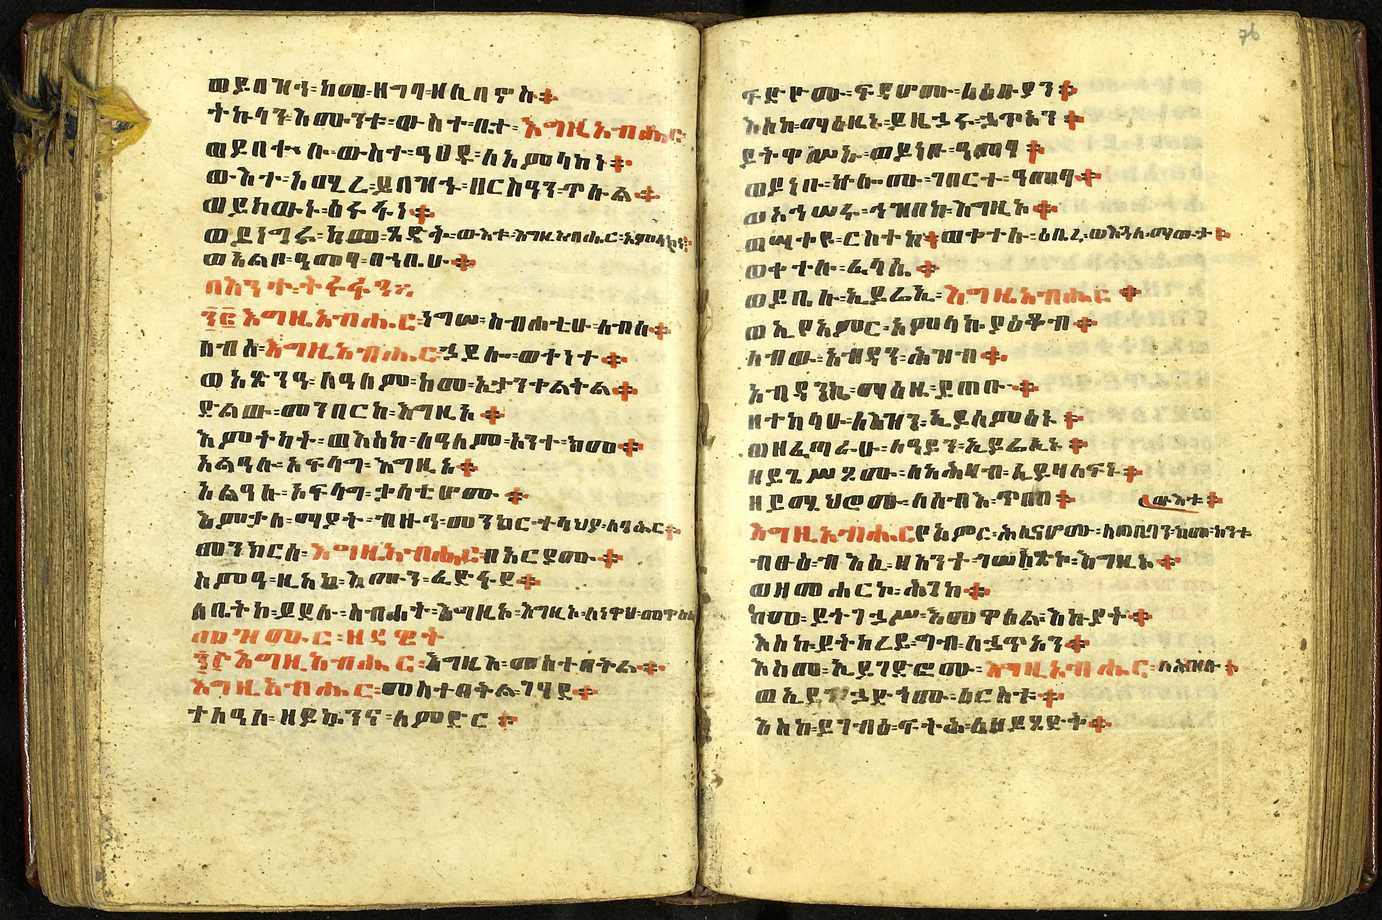 ወይበዝኅ፡ ከመ፡ ዘግባ፡ ዘሊባኖስ፨
ትኩላን፡ እሙንቱ፡ ውስተ፡ ቤተ፡ እግዚአብሔር፡
ወይበቍሉ፡ ውስተ፡ ዓፀደ፡ ለአምላክነ፨
ውእተ፡ አሚረ፡ ይበዝኁ፡ በርስዓን፡ ጥሉል፨
ወይከውኑ፡ ዕሩፋነ፨
ወይነግሩ፡ ከመ፡ ጻድቅ፡ ውእቱ፡ እግዚአብሔር፡ አምላክነ፨
ወአልቦ፡ ዓመፃ፡ በኀቤሁ፨
በእንተ፡ ትሩፋን፨
፺፪ እግዚአብሔር፡ ነግሠ፡ ስብሐቲሁ፡ ለብሰ፨
ለብሰ፡ እግዚአብሔር፡ ኃይሎ፡ ወቀነተ፨
ወአጽንዓ፡ ለዓለም፡ ከመ፡ ኢታንቀልቅል፨
ድልው፡ መንበርከ፡ እግዚኦ፨
እምትካት፡ ወእስከ፡ ለዓለም፡ አንተ፡ ክመ፨
አልዓሉ፡ አፍላግ፡ እግዚኦ፨
አልዓሉ፡ አፍላግ፡ ቃላቲሆሙ፨
እምቃለ፡ ማያት፡ ብዙኅ፡ መንክር፡ ተላህያ፡ ለባሕር፨
መንክርሰ፡ እግዚአብሔር፡ በአርያሙ፨
ስምዓ፡ ዚአከ፡ እሙን፡ ፈድፋደ፨
ለቤትከ፡ ይደሉ፡ ስብሐት፡ እግዚኦ፡ እግዚኦ፡ ለነዋኅ፡ መዋዕል
መዝሙር፡ ዘዳዊት
፺፫ እግዚአብሔር፡ እግዚእ፡ መስተበቅል፨
እግዚአብሔር፡ መስተበቅል፡ ገሃደ፨
ተለዓለ፡ ዘይኴንና፡ ለምድር፨
76
ፍድዮሙ፡ ፍዳሆሙ፡ ለዕቡያን፨
እስከ፡ ማዕዜኑ፡ ይዜኃሩ፡ ኃጥአን፨
ይትዋሥኡ፡ ወይነቡ፡ ዓመፃ፨
ወይነቡ፡ ኵሎሙ፡ ገበርተ፡ ዓመፃ፨
ወአኅሠሩ፡ ሕዝበከ፡ እግዚኦ፨
ወሣቀዩ፡ ርስተከ፨ ወቀተሉ፡ ዕቤረ፡ ወእጓለ፡ ማውታ፨
ወቀተሉ፡ ፈላሴ፨
ወይቤሉ፡ ኢይሬኢ፡ እግዚአብሔር፨
ወኢየአምር፡ አምላኩ፡ ያዕቆብ፨
ለብው፡ አብዳን፡ ሕዝብ፨
አብዳንኬ፡ ማዕዜ፡ ይጠቡ፨
ዘተከላሁ፡ ለእዝን፡ ኢይሰምዕኑ፨
ወዘፈጣራሁ፡ ለዓይን፡ ኢይሬኢኑ፨
ዘይጌሥጾሙ፡ ለአሕዛብ፡ ኢይዛለፍኑ፨
ዘይሜህሮሙ፡ ለሰብእ፡ ጥበበ፨ ውእቱ፨
እግዚአብሔር፡ የአምር፡ ሕሊናሆሙ፡ ለጠቢባን፡ ከመ፡ ከንቱ
ብፁዕ፡ ብእሲ፡ ዘአንተ፡ ገሠጽኮ፡ እግዚኦ፨
ወዘመሐርኮ፡ ሕገከ፨
ከመ፡ ይትገኃሥ፡ እመዋዕል፡ እኩያት፨
እስከ፡ ይትከረይ፡ ግብ፡ ለኃጥአን፨
እስመ፡ ኢይገድፎሙ፡ እግዚአብሔር፡ ለሕዝቡ፨
ወኢየኀድጎሙ፡ ለርስቱ፨
እስከ፡ ይገብዕ፡ ፍትሕ፡ ለዘይጸድቅ፨